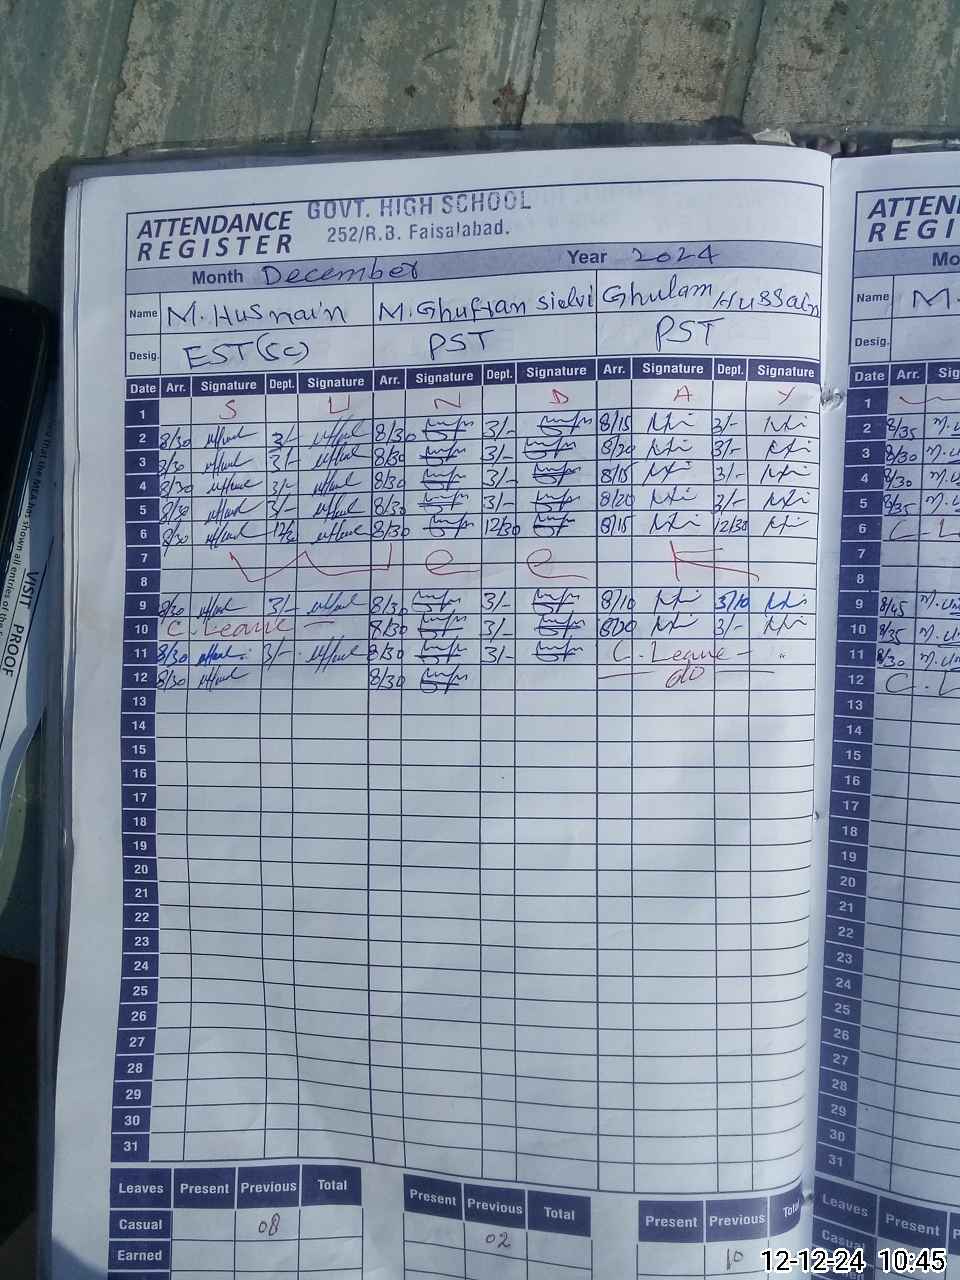 GOVT. HIGH SCHOOL
ATTENDANCE REGISTER
252/R.B. Faisalabad.
Month December Year 2024
Name M. Husnain M. Ghufran Ghulam Hussain
Desig. EST(SC) PST PST
Date Arr. Signature Dept. Signature Arr. Signature Dept. Signature Arr. Signature Dept. Signature
1 S U N D A Y
2 8/30 3/- 8/30 3/- 8/15 3/-
3 8/30 3/- 8/30 3/- 8/20 3/-
4 8/30 3/- 8/30 3/- 8/15 3/-
5 8/30 3/- 8/30 3/- 8/20 3/-
6 8/30 8/30 12/30 8/15 12/30
7 W e e K
8
9 8/30 3/- 8/30 3/- 8/10 3/10
10 C. Leave 8/30 3/- 8/20 3/-
11 8/30 3/- 8/30 3/- C. Leave
12 8/30 8/30 do
13
14
15
16
17
18
19
20
21
22
23
24
25
26
27
28
29
30
31
Leaves Present Previous Total Present Previous Total Present Previous Total
Casual 08 02 10
Earned
Name M.
Desig.
Date Arr.
1
2 8/35
3 8/30
4 8/30
5 8/35
6 C. L
7
8
9 8/45
10 8/35
11 8/30
12 C. L
13
14
15
16
17
18
19
20
21
22
23
24
25
26
27
28
29
30
31
Leaves Present
VISIT PROOF
12-12-24 10:45